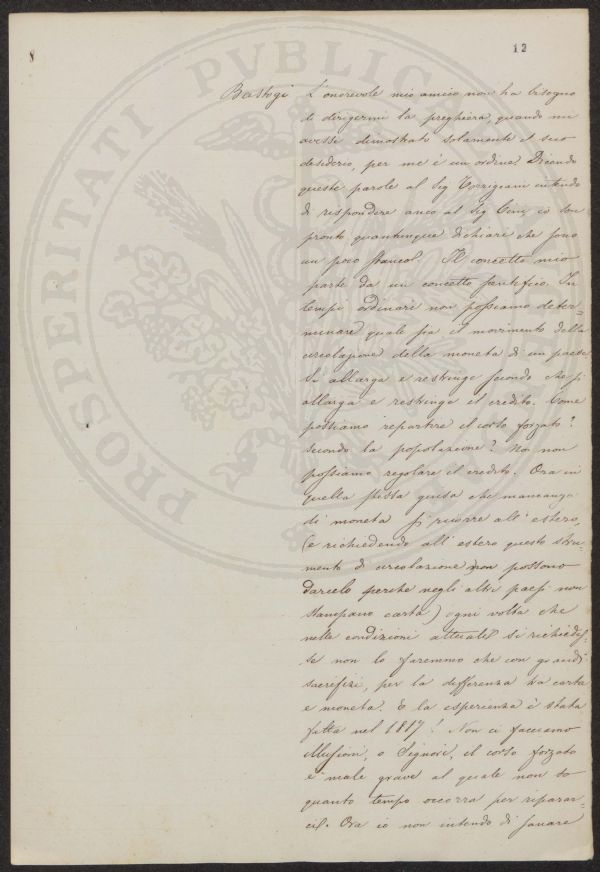 12
PROSPERITATI PVBLICAE
Bastogi L'onorevole mio amico non ha bisogno
di dirigermi la preghiera, quando mi
avesse dimostrato solamente il suo
desiderio, per me è un ordine. Dicendo
queste parole al Sig Torrigiani intendo
di rispondere anco al Sig Cini, io son
pronto quantunque dichiari che sono
un poco stanco. Il concetto mio
parte da un concetto scientifico. In
tempi ordinari non possiamo deter=
minare quale sia il movimento della
circolazione della moneta di un paese
Si allarga e restringe secondo che si
allarga e restringe il credito. Come
possiamo repartire il corso forzato?
secondo la popolazione? Noi non
possiamo regolare il credito. Ora in
quella stessa guisa che mancanza
di moneta si ricorre all'estero,
(e richiedendo all'estero questo stru=
mento di circolazione non possono
darcelo perche negli altri paesi non
stampano carta) ogni volta che
nelle condizioni attuali si richiedes=
se non lo faremmo che con grandi
sacrifizi, per la differenza tra carta
e moneta. E la esperienza è stata
fatta nel 1817! Non ci facciamo
illusioni, o Signori, il corso forzato
è male grave al quale non so
quanto tempo occorra per riparar=
ci. Ora io non intendo di sanare